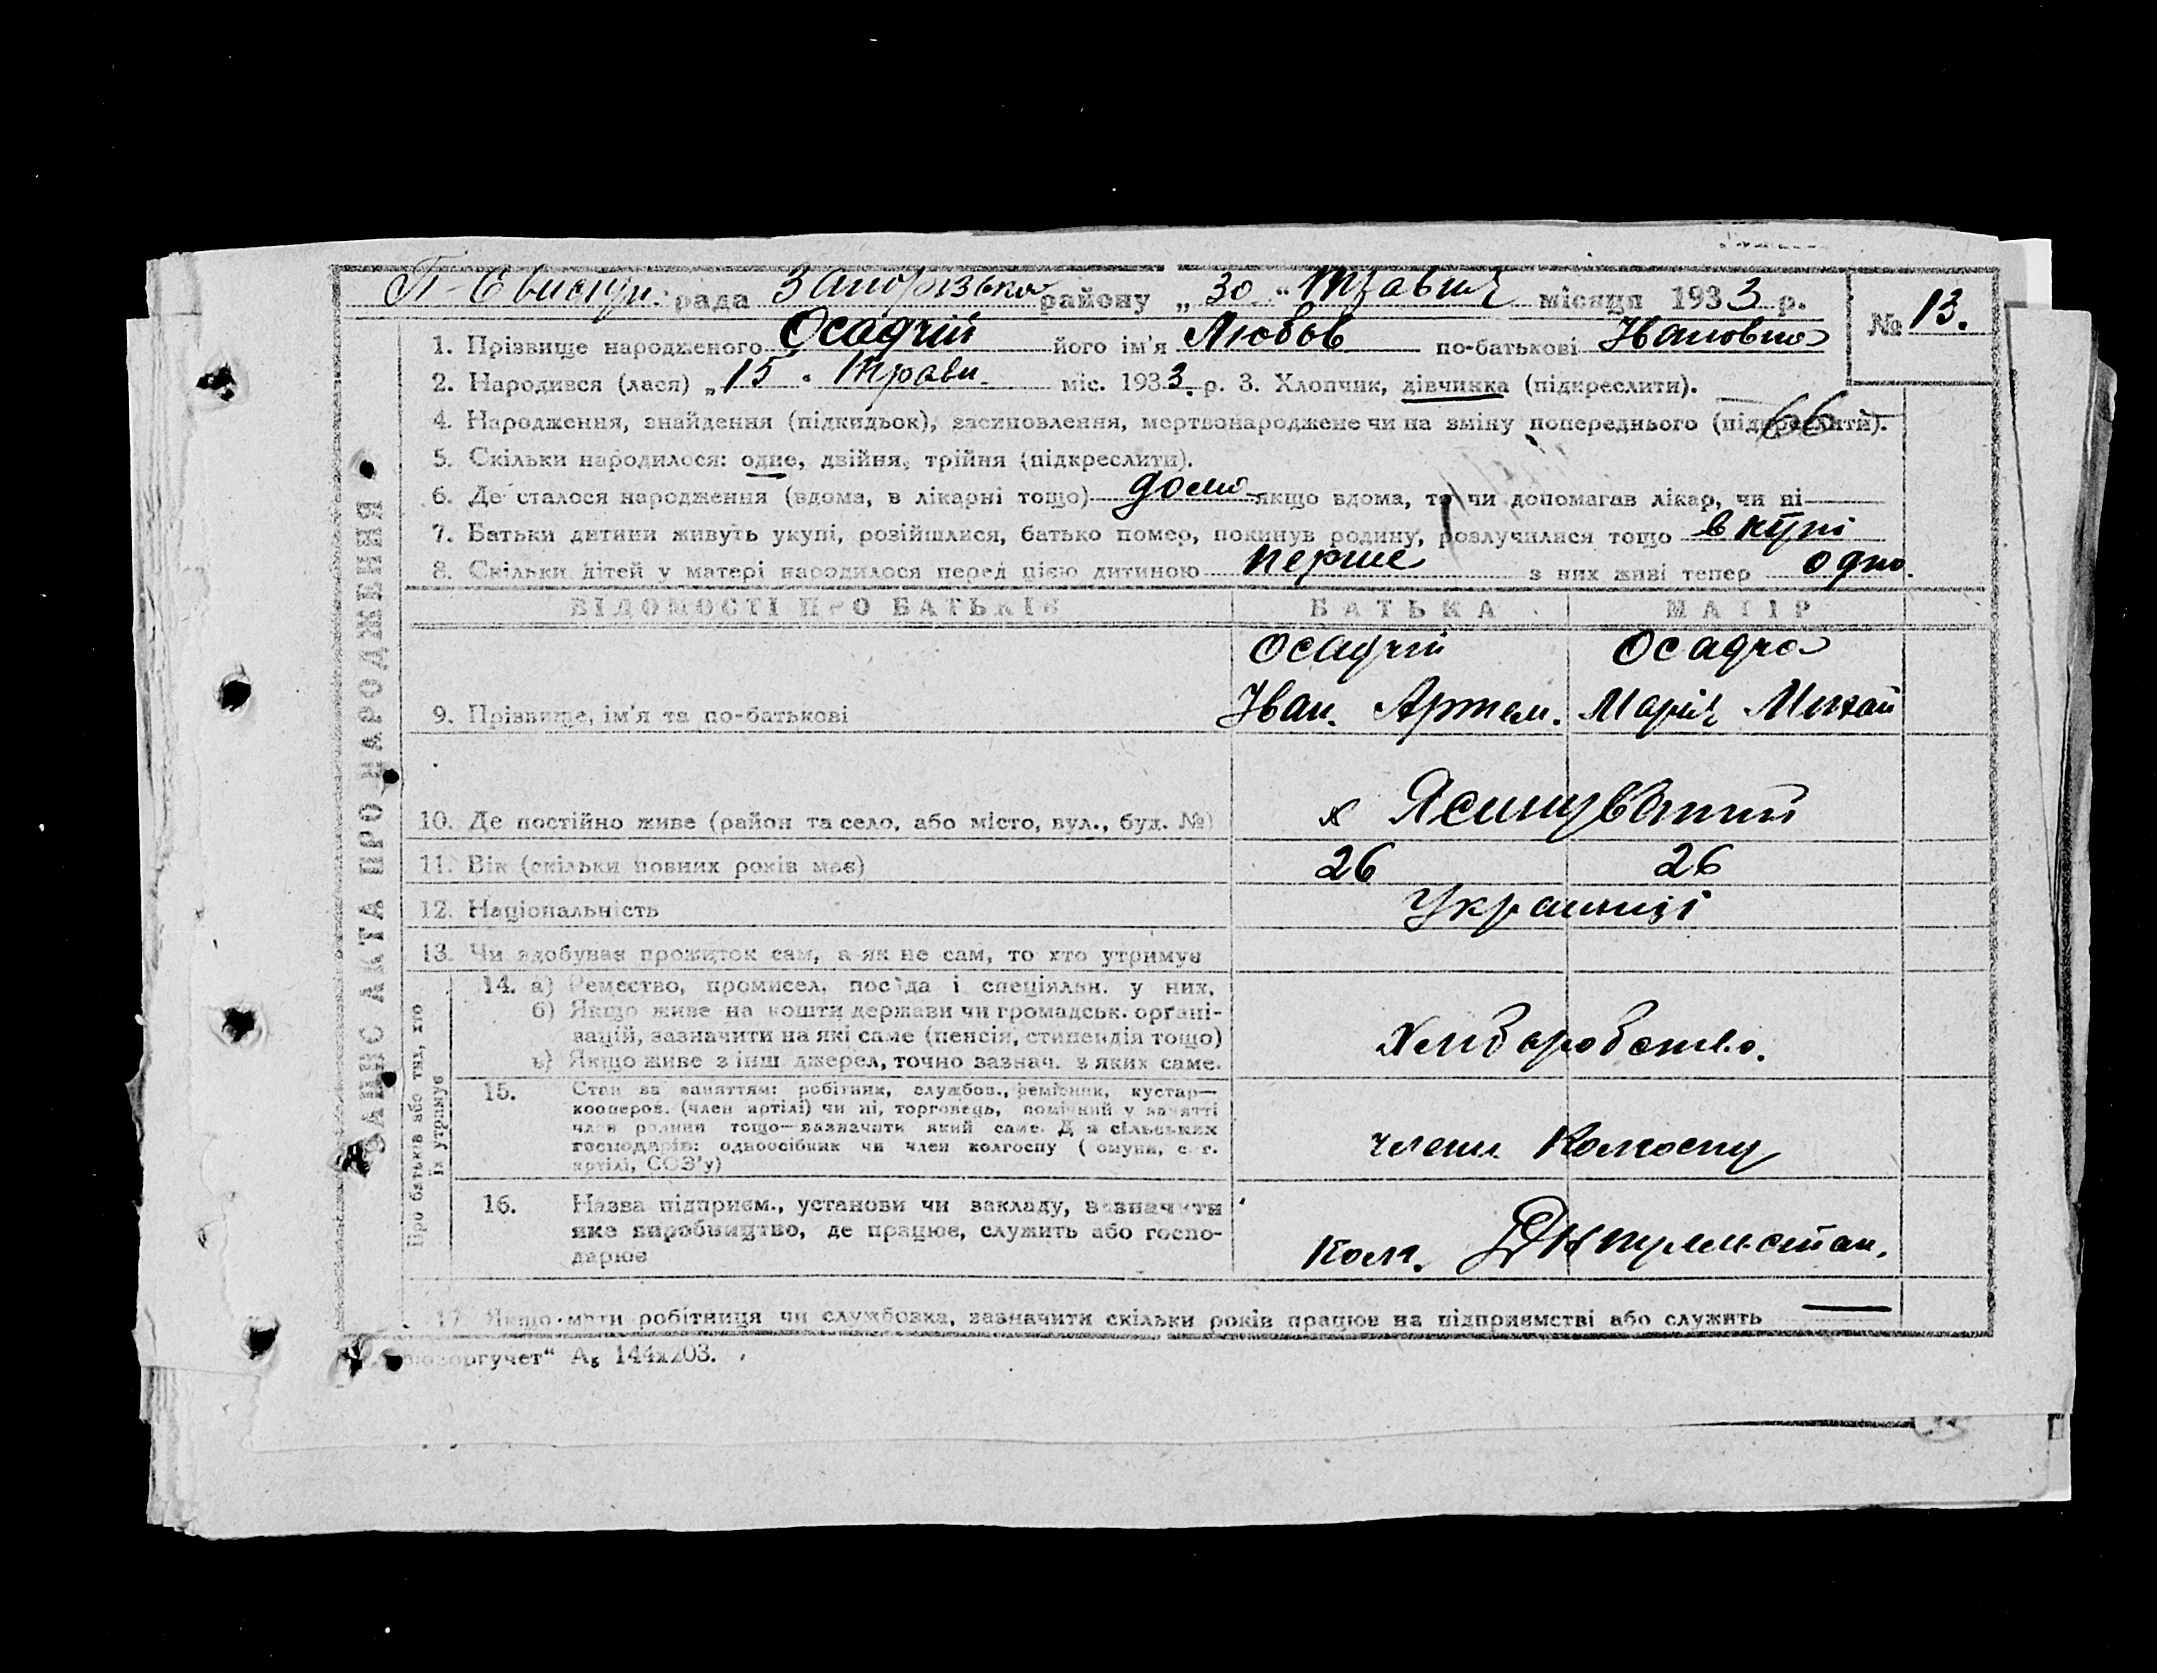 П-Евискун. рада Запорізько району „30“ Травня місяця 1933 р.
№ 13.
1. Прізвище народженого Осадчій його ім'я Любов по-батькові Івановна
2. Народився (лася) „15 . Травн. міс. 1933. р. 3. Хлопчик, дівчинка (підкреслити).
66
4. Народження, знайдення (підкидьок), засиновлення, мертвонароджене чи на зміну попереднього (підкреслити).
5. Скільки народилося: одне, двійня, трійня (підкреслити).
6. Де сталося народження (вдома, в лікарні тощо) дома якщо вдома, то чи допомагав лікар, чи ні
7. Батьки дитини живуть укупі, розійшлися, батько помер, покинув родину, розлучилися тощо вкупі
8. Скільки дітей у матері народилося перед цією дитиною перше з них живі тепер одно.
ЗАПИС АКТА ПРО НАРОДЖЕННЯ
ВІДОМОСТІ ПРО БАТЬКІВ БАТЬКА МАТІР
Осадчій Осадча
9. Прізвище, ім'я та по-батькові Іван. Артем. Марія Михай
10. Де постійно живе (район та село, або місто, вул., буд. №) х Ясинуватий
11. Вік (скільки повних років має) 26 26
12. Національність Українці
13. Чи здобуває прожиток сам, а як не сам, то хто утримує
Про батьків або тих, хто
їх утримує
14. а) Ремество, промисел, посада і спеціяльн. у них.
б) Якщо живе на кошти держави чи громадськ. орґані-
зацій, зазначити на які саме (пенсія, стипендія тощо)
в) Якщо живе з інш джерел, точно зазнач. з яких саме.
Хліборобство.
15. Стан за заняттям: робітник, службов., ремісник, кустар—
кооперов. (член артілі) чи ні, торговець, помічний у занятті
член родини тощо—зазначити який саме. Для сільських
господарів: одноосібник чи член колгоспу (комуни, с.-г.
артілі, СОЗ'у)
члени Колгоспу
16. Назва підприєм., установи чи закладу, зазначити
яке виробництво, де працює, служить або госпо-
дарює
Колг.
17. Якщо мати робітниця чи службовка, зазначити скільки років працює на підприємстві або служить —
"Союзоргучет“ А₅ 144х203.